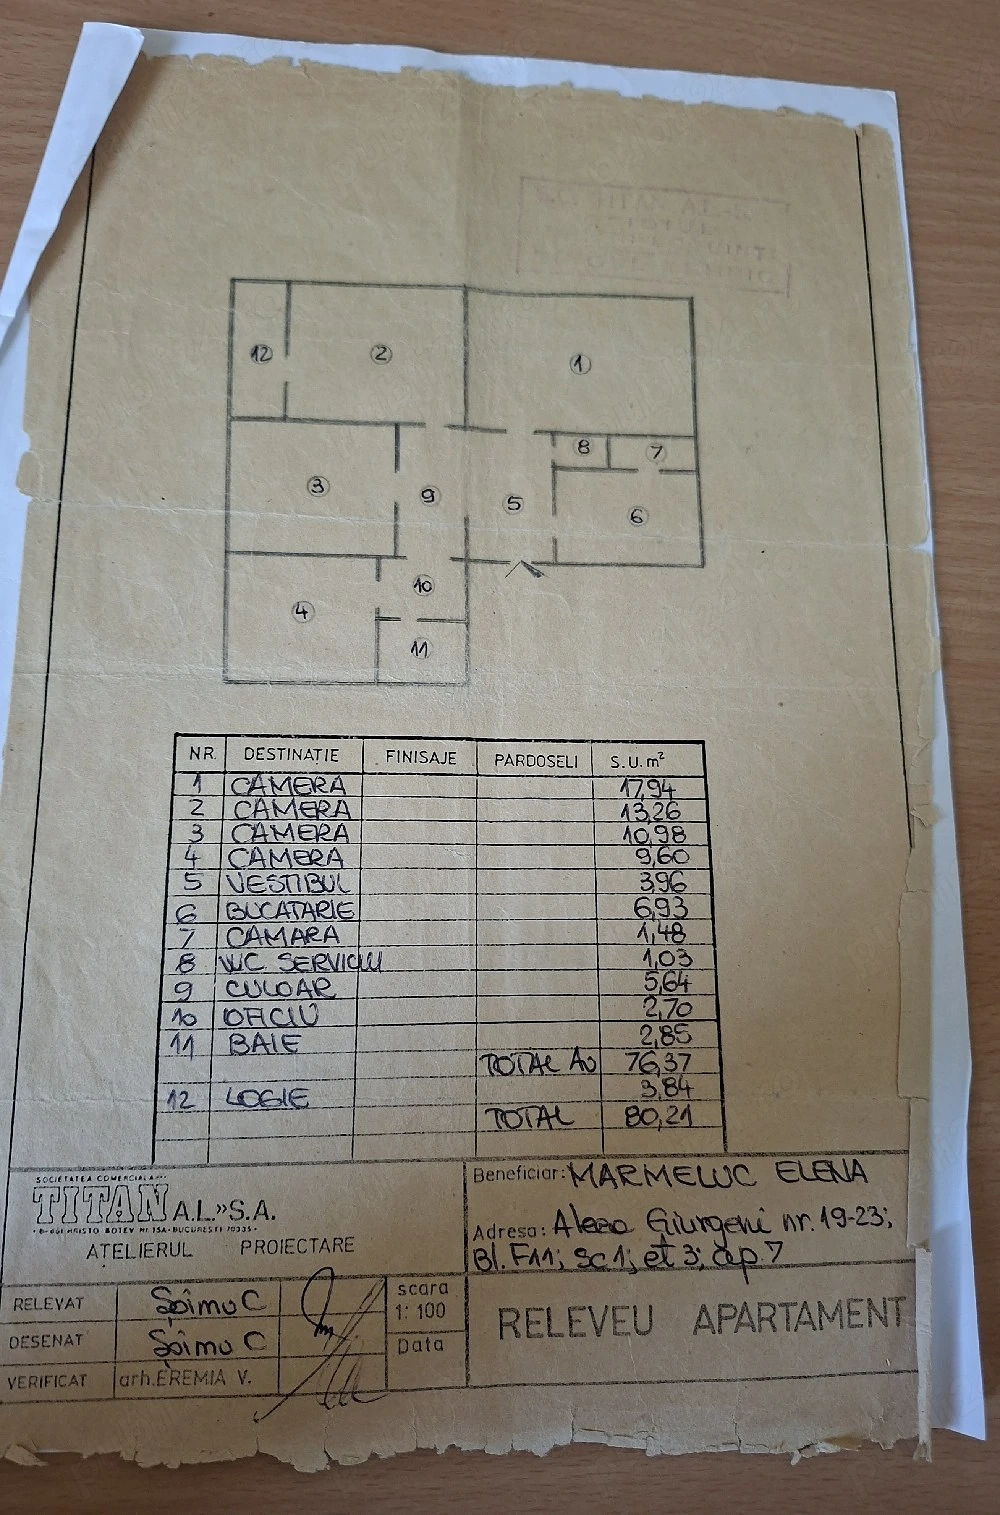 12
2
1
8
7
3
9
5
6
10
4
11
NR. DESTINAȚIE FINISAJE PARDOSELI S.U. m²
1 CAMERA 17,94
2 CAMERA 13,26
3 CAMERA 10,98
4 CAMERA 9,60
5 VESTIBUL 3,96
6 BUCATARIE 6,93
7 CAMARA 1,48
8 WC SERVICIU 1,03
9 CULOAR 5,64
10 OFICIU 2,70
11 BAIE 2,85
TOTAL Au 76,37
12 LOGIE 3,84
TOTAL 80,21
SOCIETATEA COMERCIALA
TITAN A.L.» S.A.
HRISTO BOTEV Nr. 15A-BUCURESTI 70335
ATELIERUL PROIECTARE
Beneficiar: MARMELUC ELENA
Adresa: Aleea Giurgeni nr. 19-23;
Bl. F11; sc 1; et 3; ap. 7
RELEVAT Șoimu C
DESENAT Șoimu C
VERIFICAT arh. EREMIA V.
scara
1:100
Data
RELEVEU APARTAMENT